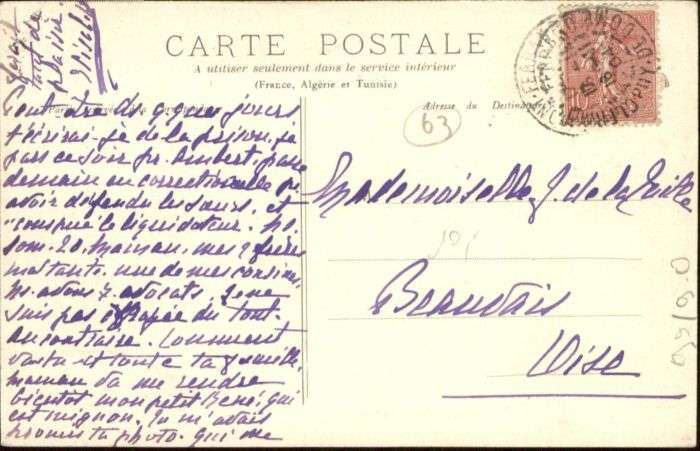 CARTE POSTALE
A utiliser seulement dans le service intérieur
(France, Algérie et Tunisie)
Adresse du Destinataire
63
Peut être dans q. ques jours
t'écrirai-je de la prison, je
pars ce soir pr. Ambert, passe
demain en correctionnelle pr
avoir défendu les sœurs, et
"conspué le liquidateur. Ns.
som. 20, maman, mes 2 frères
ma tante, une de mes cousines,
ns. avons 7 avocats. Je ne
suis pas effrayée du tout
au contraire. Comment
vas-tu et toute ta famille,
maman va me rendre
bientôt mon petit René, qui
est mignon. Tu m'avais
promis ta photo. qui me
ferait
tant de
plaisir
Mademoiselle J. de la
Beauvais
Oise